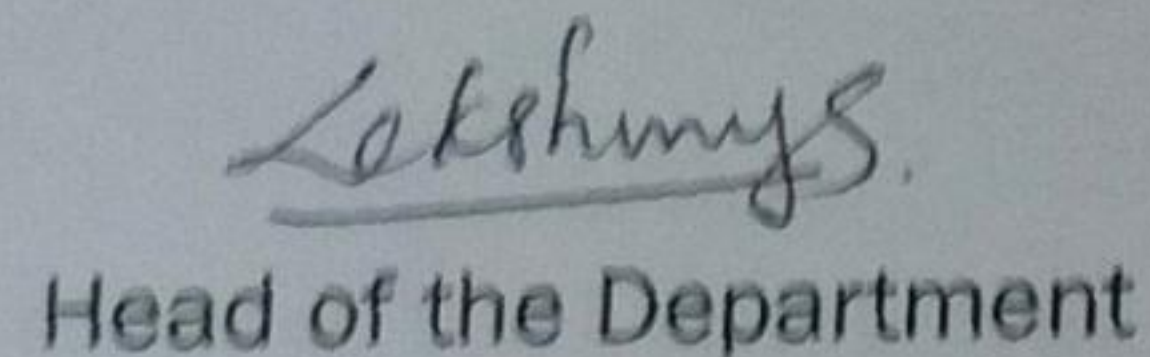 Lekshmy S.
Head of the Department